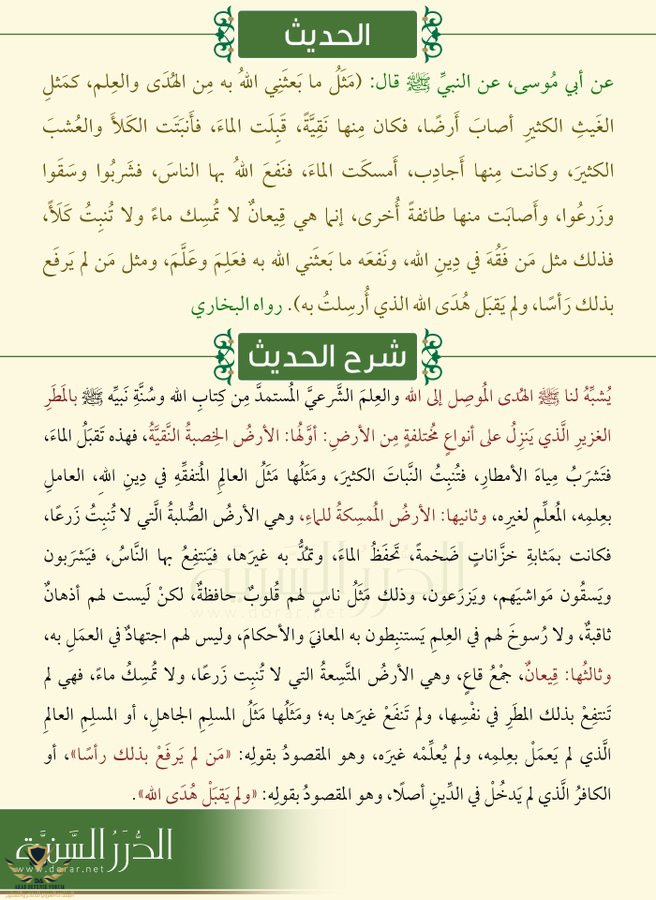 الحديث
عن أبي مُوسى، عن النبيِّ ﷺ قال: (مَثَلُ ما بَعثَنِي اللهُ به مِن الهُدَى والعِلم، كمَثلِ
الغَيثِ الكثيرِ أصابَ أَرضًا، فكان مِنها نَقِيَّةً، قَبِلَت الماءَ، فأَنبَتَت الكَلأَ والعُشبَ
الكثيرَ، وكانت مِنها أَجادِب، أَمسكَت الماءَ، فنَفعَ اللهُ بها الناسَ، فشَرِبُوا وسَقَوا
وزَرعُوا، وأَصابَت منها طائفةً أُخرى، إنما هي قِيعانٌ لا تُمسِك ماءً ولا تُنبِتُ كَلَأً،
فذلك مثل مَن فَقُهَ في دِينِ الله، ونَفعَه ما بَعثَني الله به فعَلِمَ وعَلَّمَ، ومثل مَن لم يَرفَع
بذلك رَأسًا، ولم يَقبَل هُدَى الله الذي أُرسِلتُ به). رواه البخاري
شرح الحديث
يُشبِّهُ لنا ﷺ الهُدى المُوصِل إلى الله والعِلمَ الشَّرعيَّ المُستمدَّ مِن كِتابِ الله وسُنَّةِ نَبيِّه ﷺ بالمَطَرِ
الغزيرِ الَّذي يَنزِلُ على أنواعٍ مُختلفةٍ مِن الأرضِ: أوَّلُها: الأرضُ الخِصبةُ النَّقيَّةُ، فهذه تَقبَلُ الماءَ،
فتَشرَبُ مِياهَ الأمطارِ، فتُنبِتُ النَّباتَ الكثيرَ، ومَثَلُها مَثَلُ العالمِ المُتفقِّهِ في دِينِ اللهِ، العاملِ
بعِلمِه، المُعلِّمِ لغيرِه، وثانيها: الأرضُ المُمسِكةُ للماءِ، وهي الأرضُ الصُّلبةُ الَّتي لا تُنبِتُ زَرعًا،
فكانت بمَثابةِ خزَّاناتٍ ضَخمةٍ، تَحفَظُ الماءَ، وتمُدُّ به غيرَها، فيَنتفِعُ بها النَّاسُ، فيَشرَبون
ويَسقُون مَواشيَهم، ويَزرَعون، وذلك مَثَلُ ناسٍ لهم قُلوبٌ حافظةٌ، لكنْ لَيست لهم أذهانٌ
ثاقبةٌ، ولا رُسوخَ لهم في العِلمِ يَستنبِطون به المعانيَ والأحكامَ، وليس لهم اجتهادٌ في العمَلِ به،
وثالثُها: قِيعانٌ، جمْعُ قاعٍ، وهي الأرضُ المتَّسِعةُ التي لا تُنبِت زَرعًا، ولا تُمسِكُ ماءً، فهي لم
تَنتفِعْ بذلك المطَرِ في نفْسِها، ولم تَنفَعْ غيرَها به؛ ومَثَلُها مَثَلُ المسلِمِ الجاهلِ، أو المسلِمِ العالمِ
الَّذي لم يَعمَلْ بعِلمِه، ولم يُعلِّمْه غيرَه، وهو المقصودُ بقولِه: «مَن لم يَرفَعْ بذلك رأسًا»، أو
الكافرُ الَّذي لم يَدخُلْ في الدِّينِ أصلًا، وهو المقصودُ بقولِه: «ولم يَقبَلْ هُدَى الله».
الدرر السنية
www.dorar.net
الدُّرَرُ السَّنِيَّة
www.dorar.net
ARAB DEFENSE FORUM